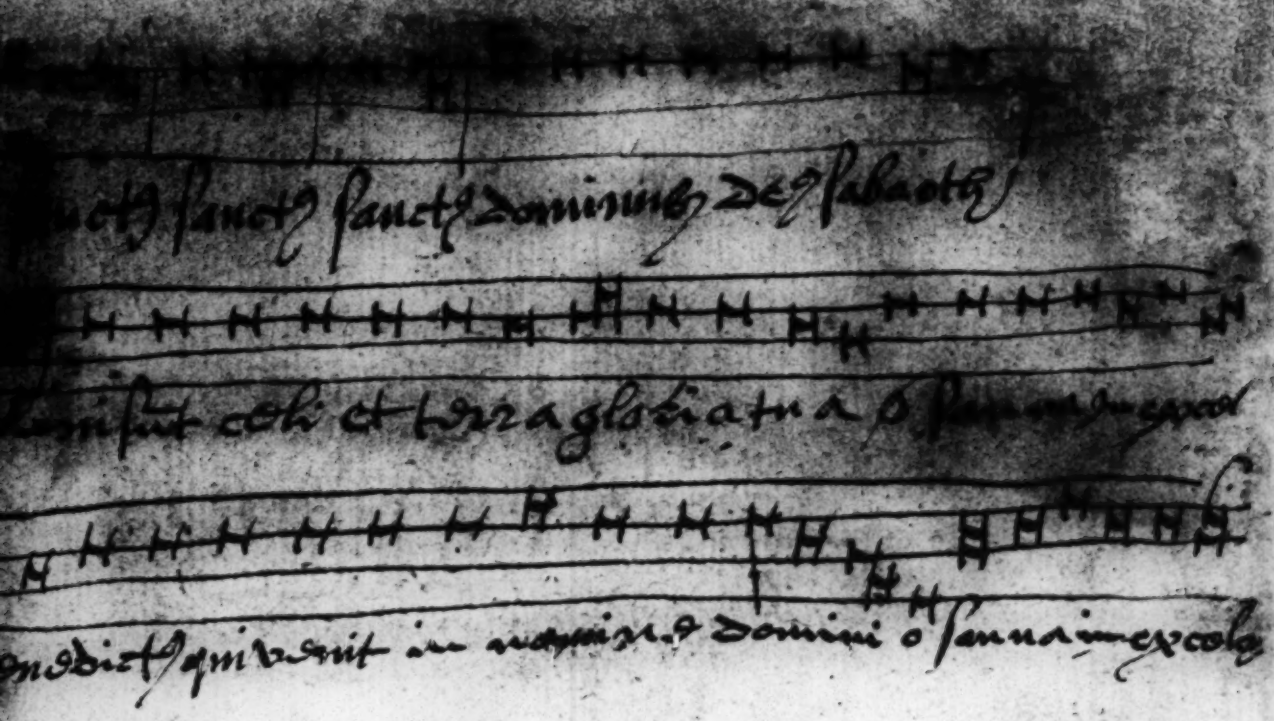 sanctꝯ sanctꝯ dominus deꝯ sabaoth
sūt celi et terra gloria tua o sanna in excel
enedictꝯ qui venit in nomine domini o sanna in excels